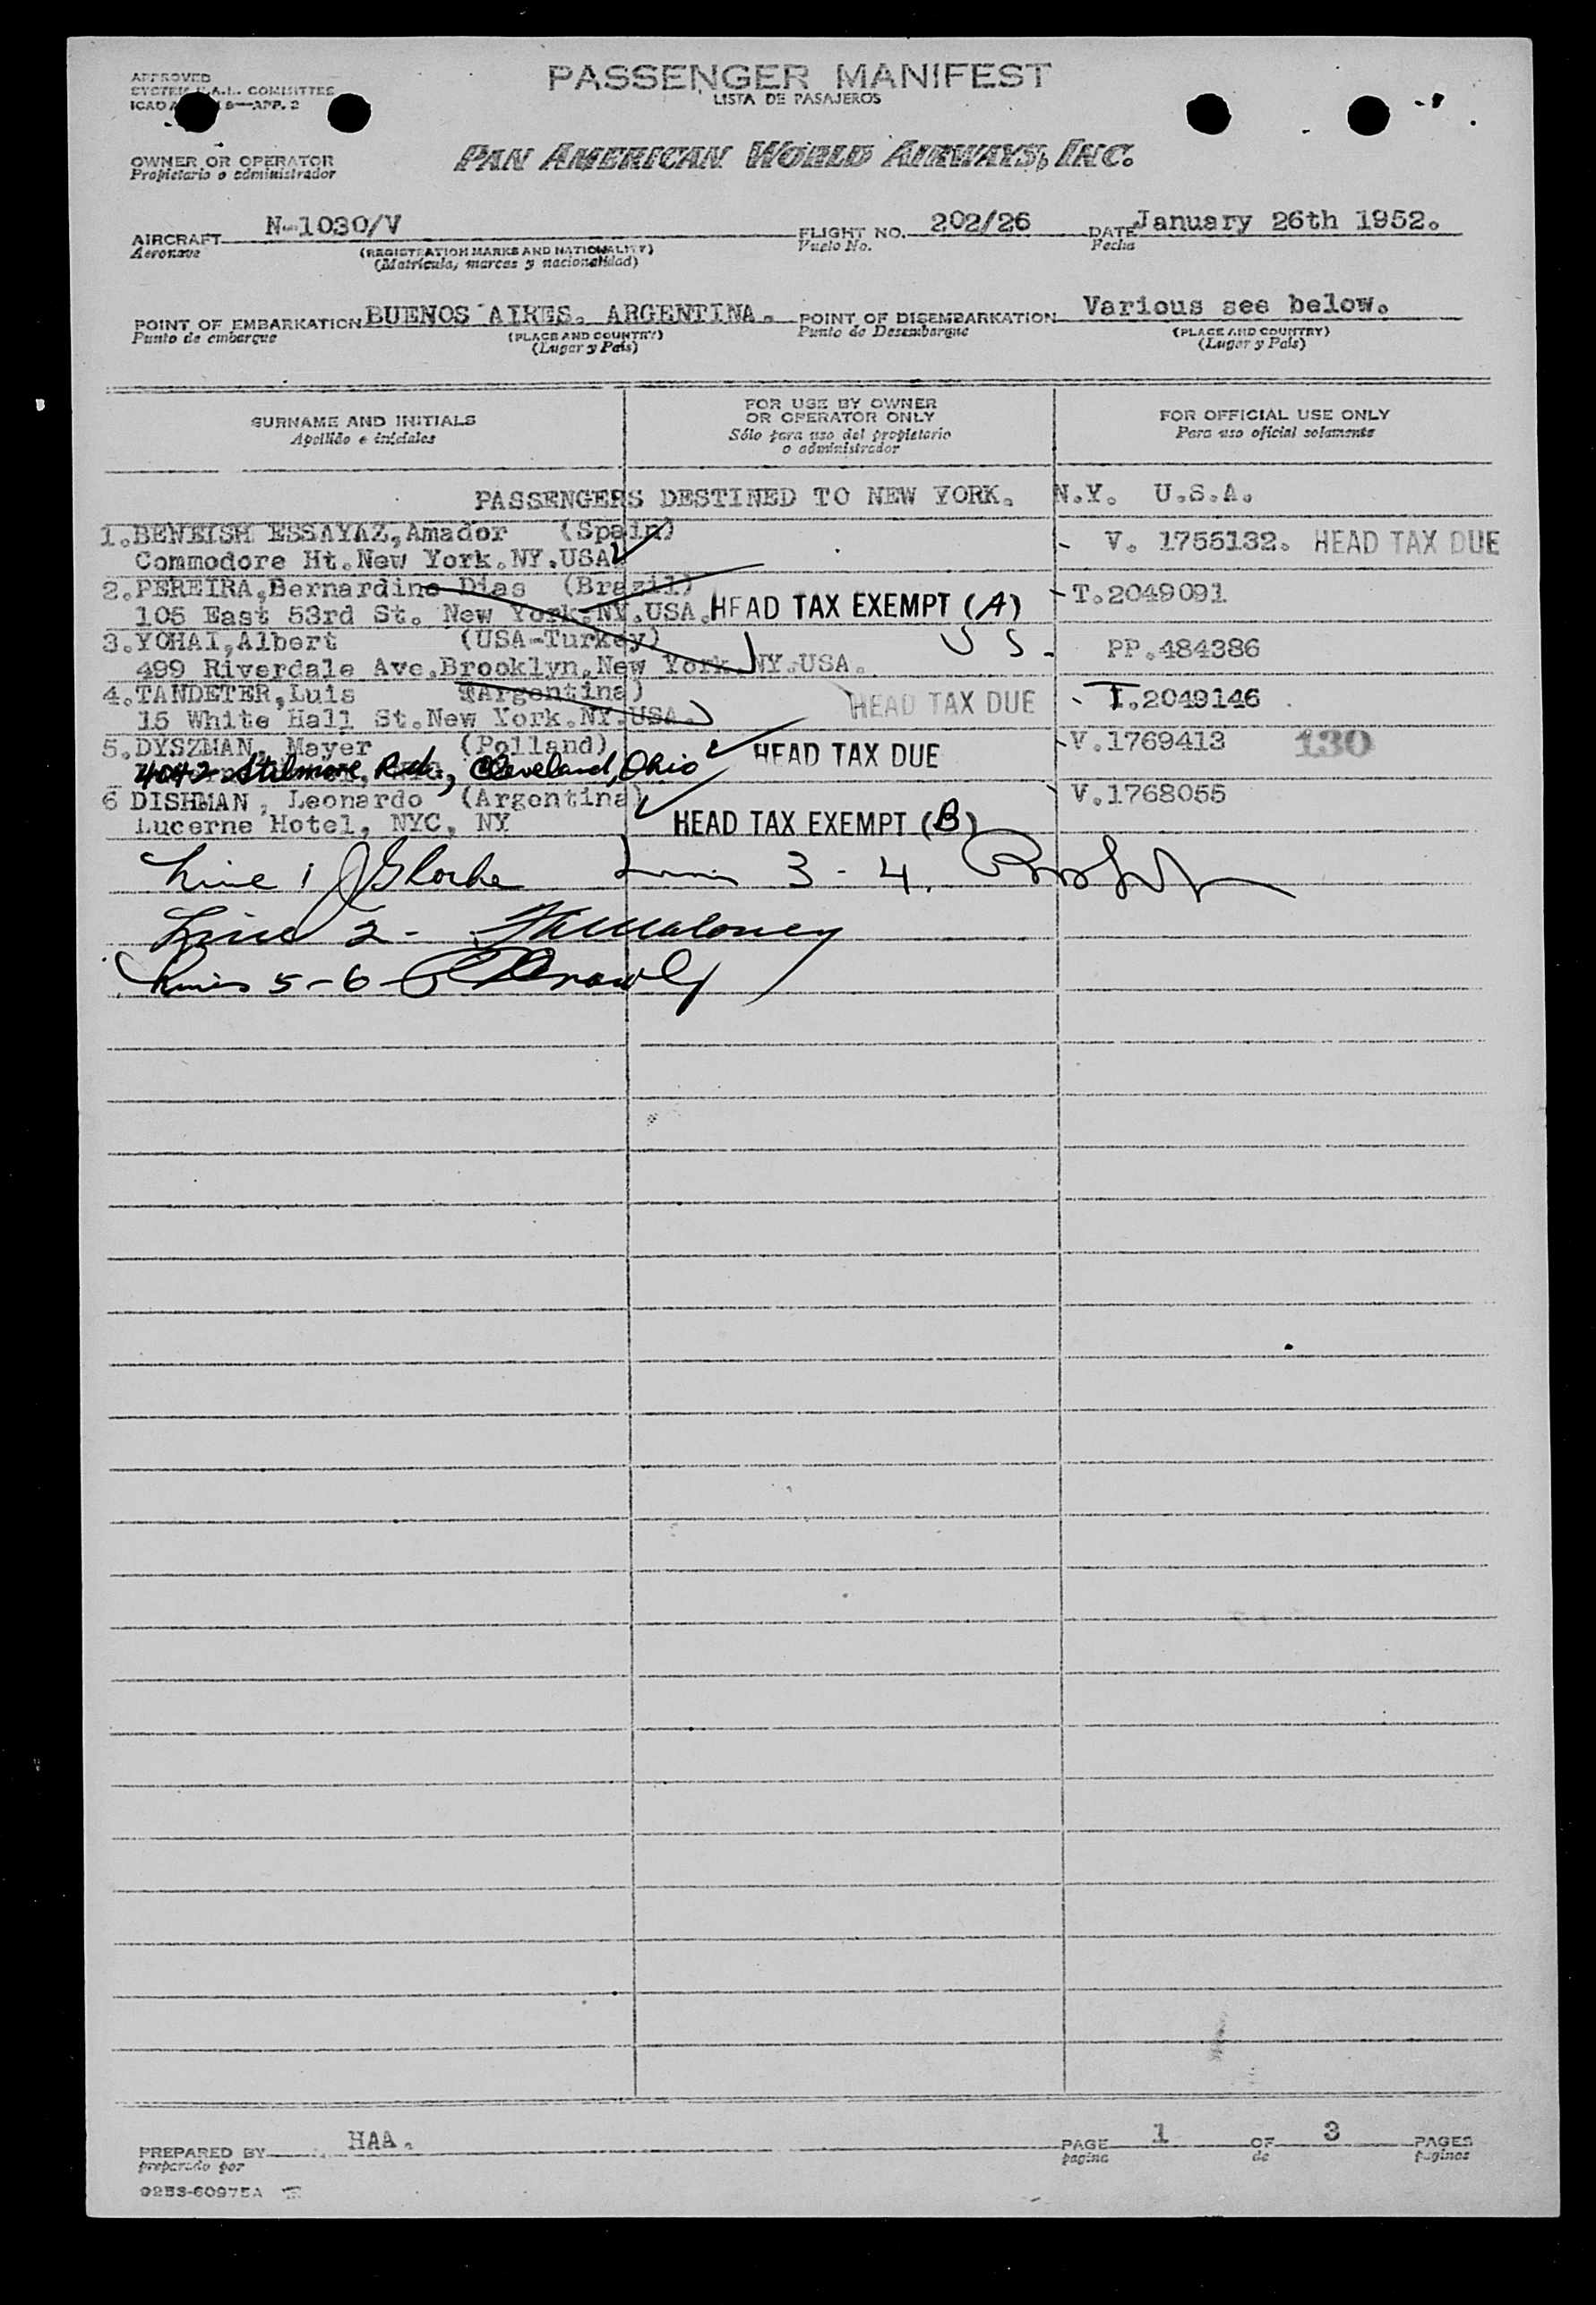 APPROVED
SYSTEM F.A.L. COMMITTEE
ICAO A 9—APP. 2
PASSENGER MANIFEST
LISTA DE PASAJEROS
OWNER OR OPERATOR
Propietario o administrador
PAN AMERICAN WORLD AIRWAYS, INC.
AIRCRAFT N-1030/V FLIGHT NO. 202/26 DATE January 26th 1952.
Aeronave (REGISTRATION MARKS AND NATIONALITY) Vuelo No. Fecha
(Matrícula, marcas y nacionalidad)
POINT OF EMBARKATION BUENOS AIRES. ARGENTINA. POINT OF DISEMBARKATION Various see below.
Punto de embarque (PLACE AND COUNTRY) Punto de Desembarque (PLACE AND COUNTRY)
(Lugar y País) (Lugar y País)
SURNAME AND INITIALS FOR USE BY OWNER OR OPERATOR ONLY FOR OFFICIAL USE ONLY
Apellido e iniciales Sólo para uso del propietario o administrador Para uso oficial solamente
PASSENGERS DESTINED TO NEW YORK. N.Y. U.S.A.
1.BENEISH ESSAYAZ,Amador (Spain) V. 1756132. HEAD TAX DUE
Commodore Ht.New York.NY.USA
2.PEREIRA,Bernardino Dias (Brazil) T.2049091
105 East 53rd St. New York.NY.USA. HEAD TAX EXEMPT (A)
3.YOHAI,Albert (USA-Turkey) U S PP.484386
499 Riverdale Ave.Brooklyn,New York NY.USA.
4.TANDETER,Luis (Argentina) HEAD TAX DUE T.2049146
15 White Hall St.New York.NY.USA.
5.DYSZMAN, Mayer (Polland) HEAD TAX DUE V.1769413 130
4042 Stilmore Rd., Cleveland, Ohio
6 DISHMAN, Leonardo (Argentina) V.1768055
Lucerne Hotel, NYC, NY HEAD TAX EXEMPT (B)
Line 1 3 - 4.
Line 2 - Maloney
Lines 5-6-
PREPARED BY HAA. PAGE 1 OF 3 PAGES
preparado por pagina de paginas
9253-60975A